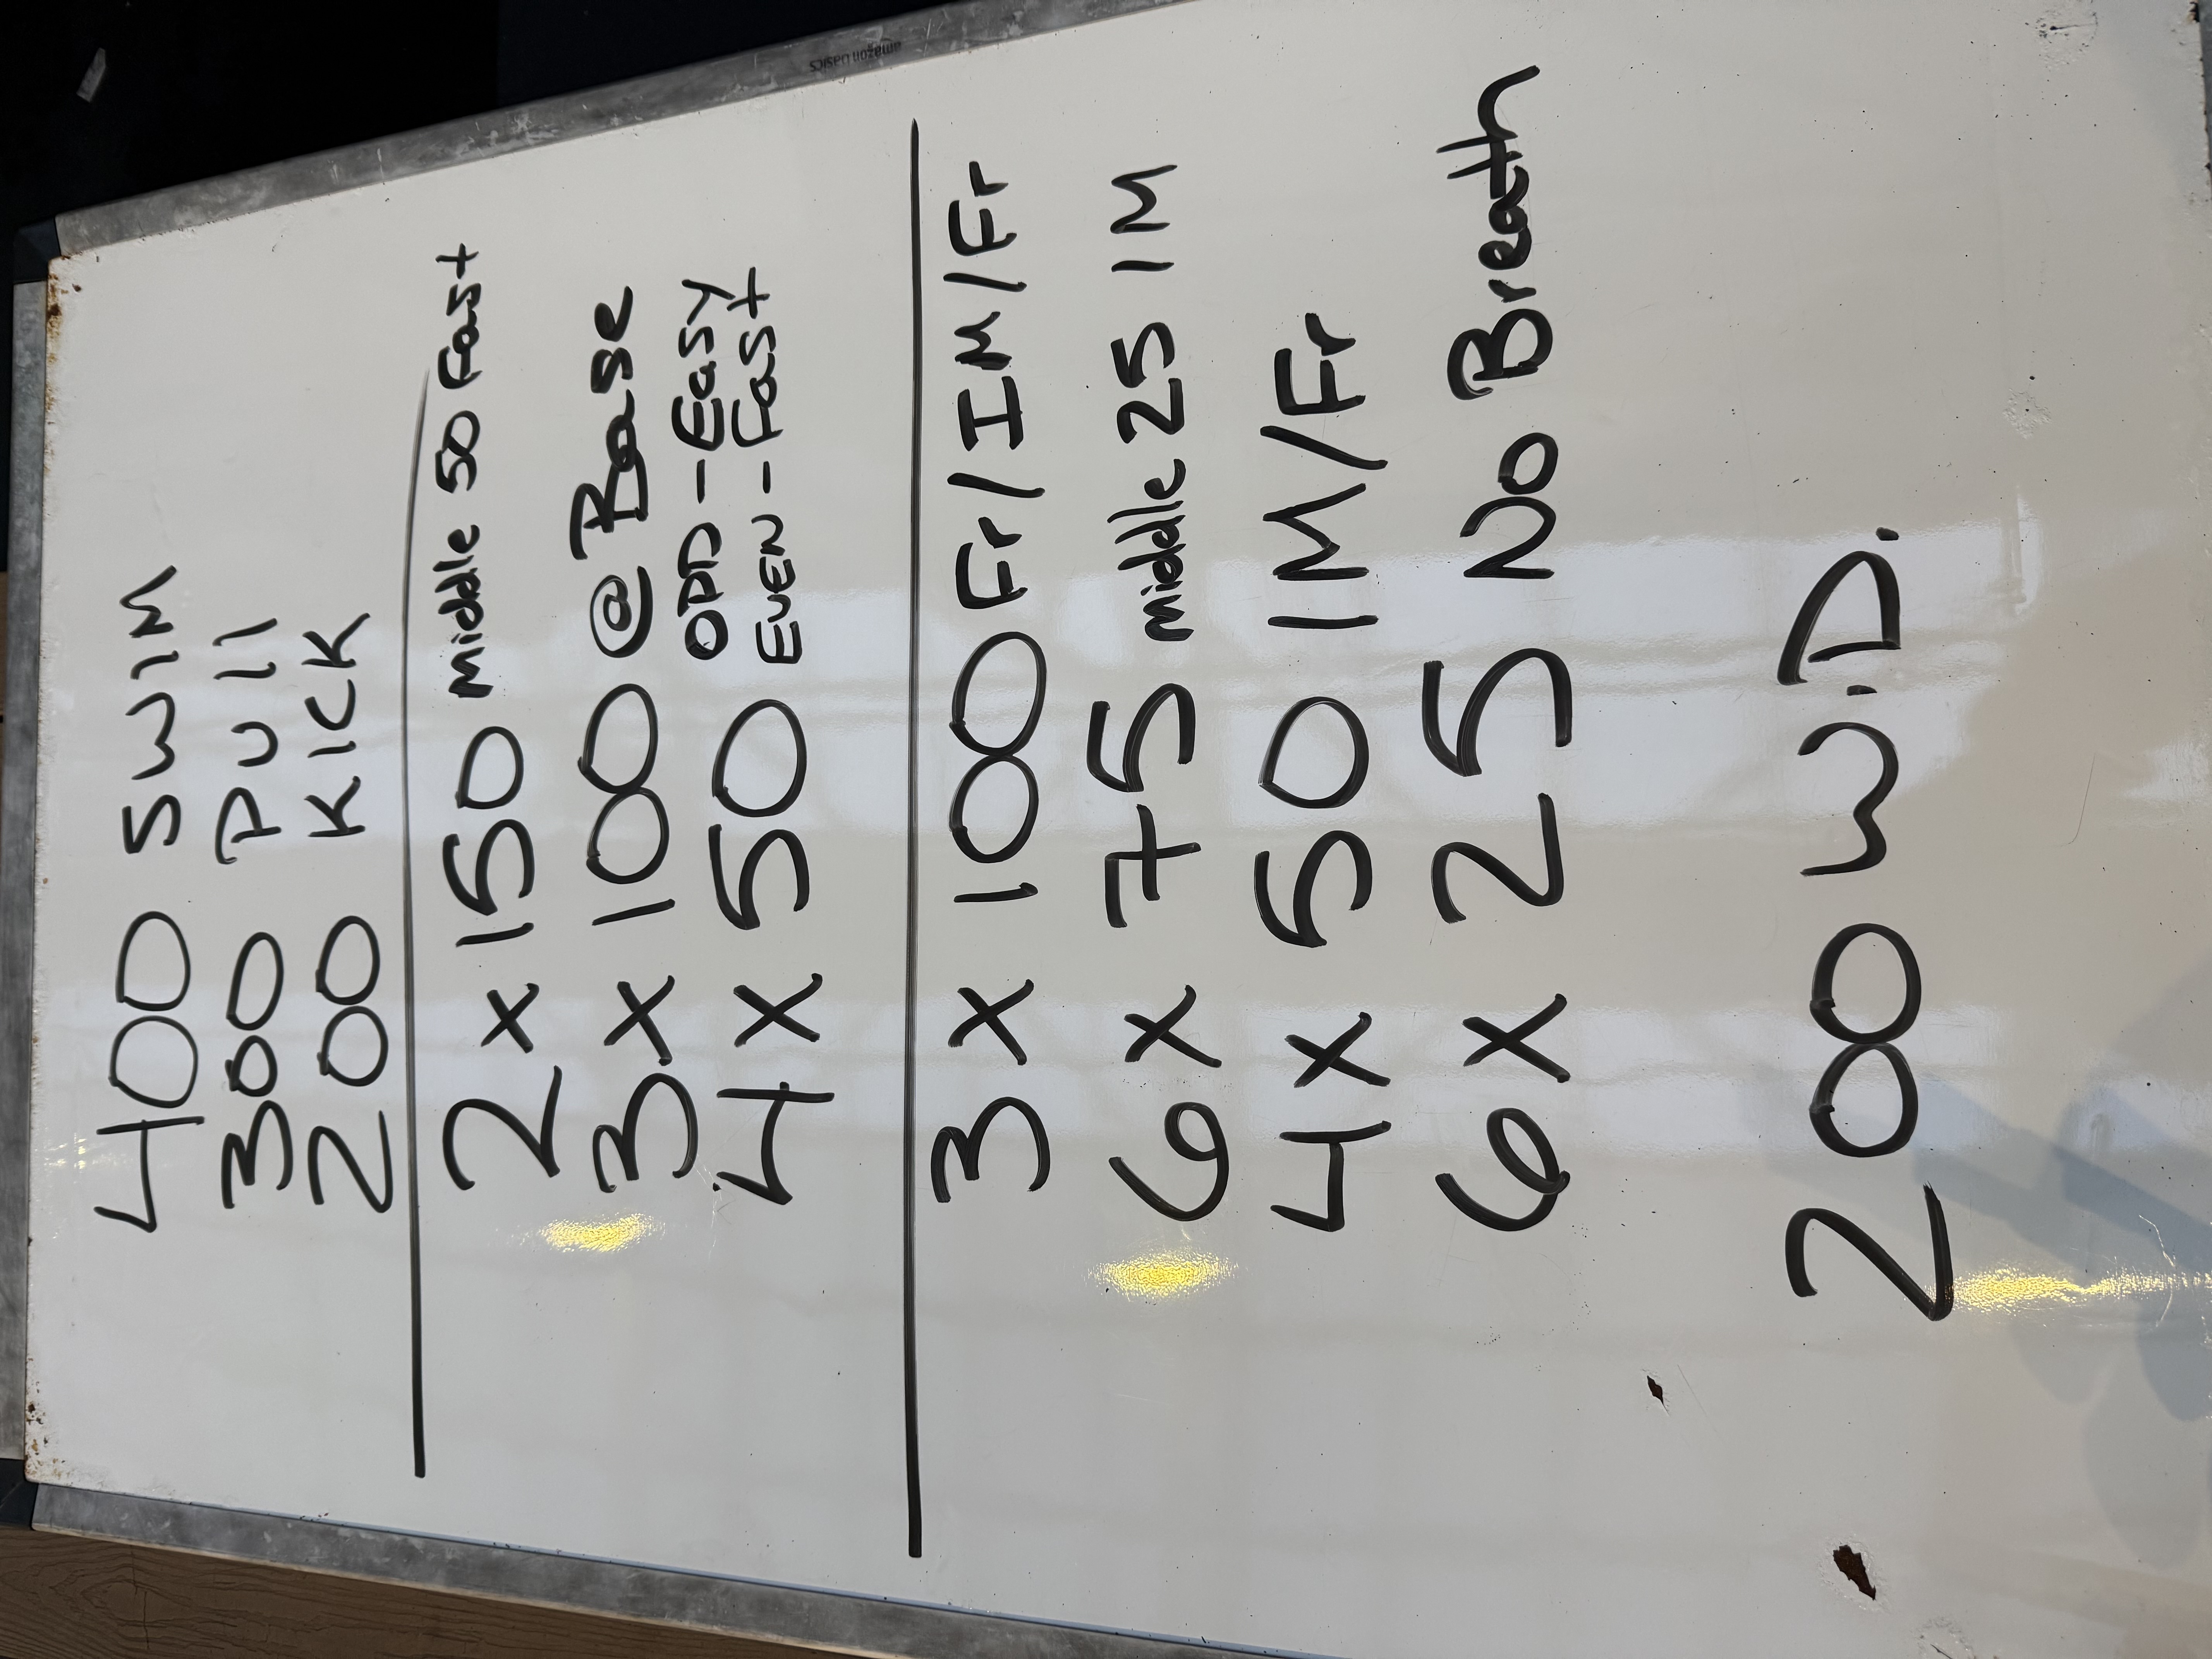 amazon basics
400 SWIM
300 PUll
200 KICK
2 x 150 middle 50 fast
3x 100 @ Base
4x 50 ODD - Easy
EVEN - Fast
3 x 100 Fr/IM/Fr
6 x 75 middle 25 IM
4x 50 IM/Fr
6x 25 No Breath
200 W.D.